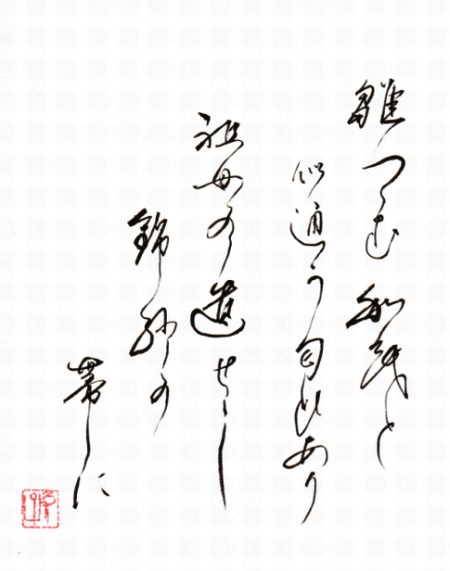 雛つゝむ和紙と
似通う匂ひあり
祖母の遺せし
錦紗の
帯に